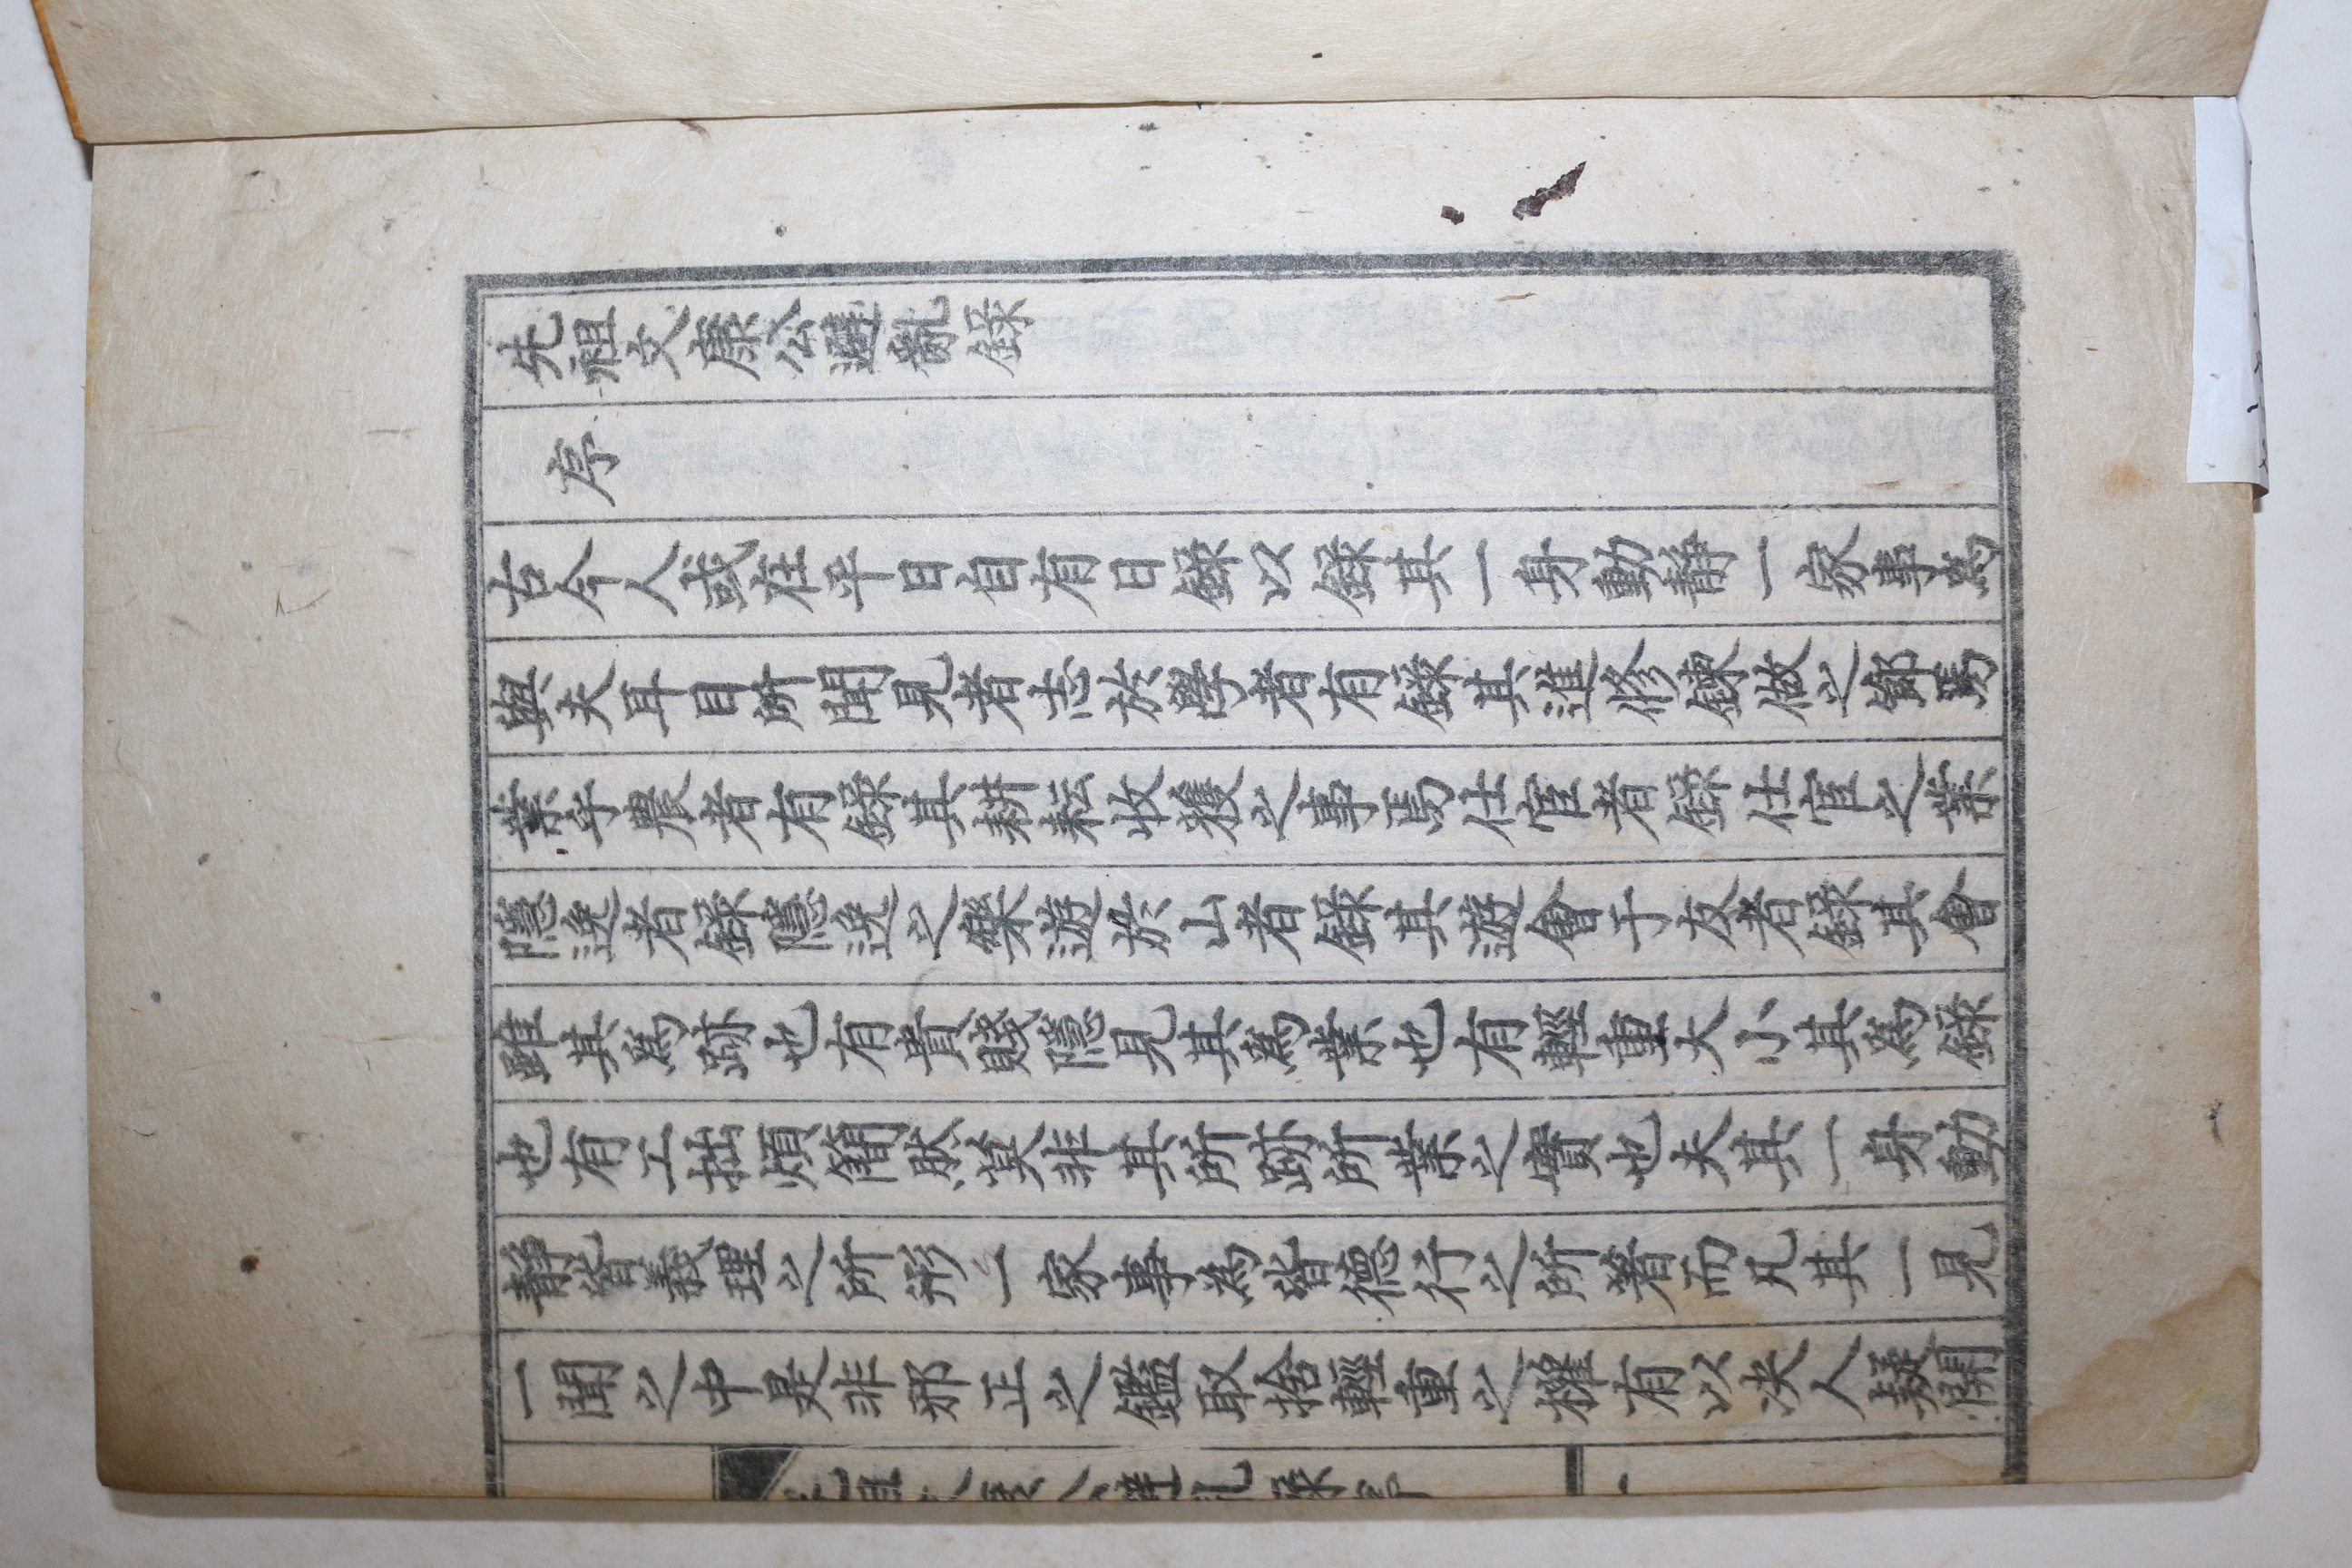 先祖文康公避亂錄
序
古今人或在平日自有日錄以錄其一身動靜一家事爲
與夫耳目所聞見者志於學者有錄其進修鍊做之節焉
業乎農者有錄其耕耘收穫之事焉仕宦者錄仕宦之業
隱逸者錄隱逸之樂遊於山者錄其遊會于友者錄其會
雖其爲跡也有貴賤隱見其爲業也有輕重大小其爲錄
也有工拙煩簡然莫非其所跡所業之實也夫其一身動
靜皆義理之所形一家事為皆德行之所著而凡其一見
一聞之中是非邪正之鑑取捨輕重之權有以決人疑開